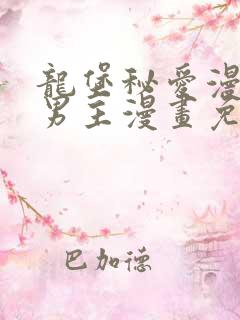 龍堡秘愛漫
男主漫畫免
巴加德